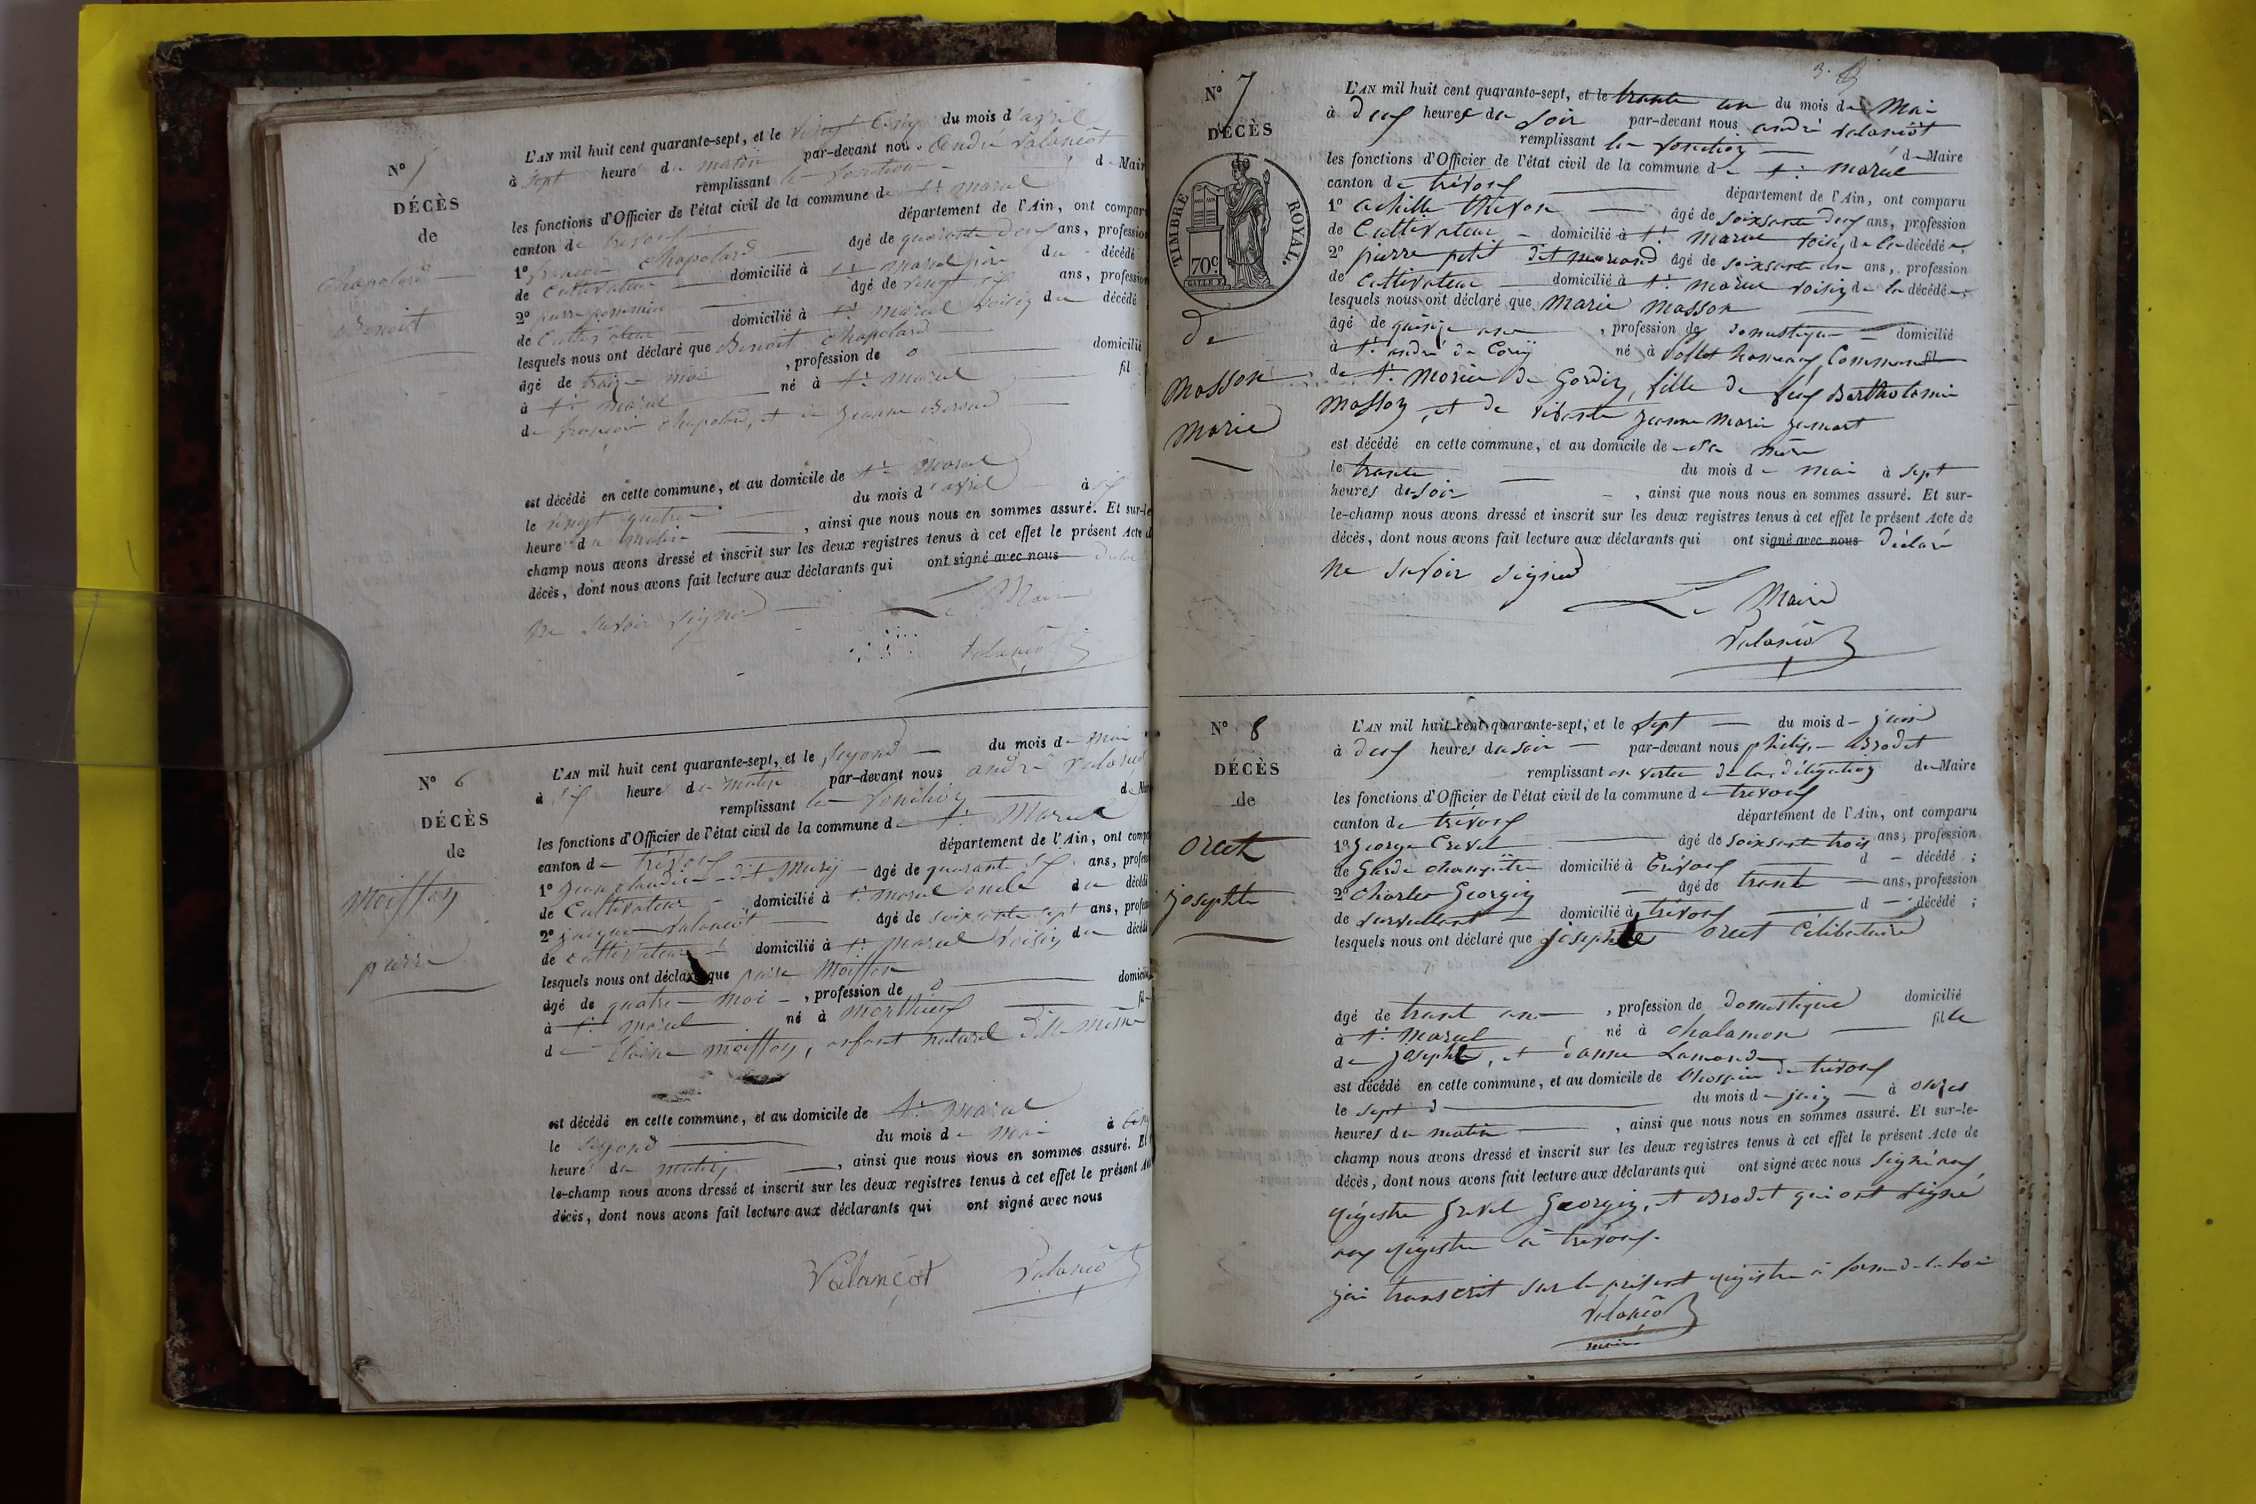 N° 5
DÉCÈS
de
Chapolard
Benoit
L'AN mil huit cent quarante-sept, et le vingt cinq du mois d'avril
à sept heure du matin par-devant nous André Valançot
remplissant les fonction de Maire
les fonctions d'Officier de l'état civil de la commune de St Marcel
canton de trévoux département de l'Ain, ont comparu
1° françois Chapolard âgé de quarante deux ans, profession
de Cultivateur domicilié à St marcel père du décédé
2° pierre âgé de vingt six ans, profession
de Cultivateur domicilié à St Marcel voisin du décédé
lesquels nous ont déclaré que Benoit Chapolard
âgé de treize moi , profession de 0 domicilié
à St marcel né à St marcel fil
de françois Chapolard, et de Jeanne
est décédé en cette commune, et au domicile de St Marcel
le vingt quatre du mois d'avril à six
heure du matin , ainsi que nous nous en sommes assuré. Et sur-le-
champ nous avons dressé et inscrit sur les deux registres tenus à cet effet le présent Acte de
décès, dont nous avons fait lecture aux déclarants qui ont signé avec nous déclaré
ne savoir signer
Le Maire
Valançot
N° 6
DÉCÈS
de
Moisson
pierre
L'AN mil huit cent quarante-sept, et le segond du mois de mai
à six heure du matin par-devant nous andré Valançot
remplissant les fonction de Maire
les fonctions d'Officier de l'état civil de la commune de St Marcel
canton de trévoux département de l'Ain, ont comparu
1° Jean claude dit Mury âgé de quarant six ans, profession
de Cultivateur domicilié à St marcel oncle du décédé
2° jacque Valançot âgé de soixante sept ans, profession
de cultivateur domicilié à St Marcel voisin du décédé
lesquels nous ont déclaré que pierre Moisson
âgé de quatre moi , profession de 0 domicilié
à St marcel né à monthieux fil
de Moisson, enfant naturel
est décédé en cette commune, et au domicile de St Marcel
le segond du mois de mai à cinq
heure du matin , ainsi que nous nous en sommes assuré. Et
le-champ nous avons dressé et inscrit sur les deux registres tenus à cet effet le présent Acte
décès, dont nous avons fait lecture aux déclarants qui ont signé avec nous
Valançot Valançot
3.
N° 7
DÉCÈS
TIMBRE ROYAL.
70c
de
Masson
Marie
L'AN mil huit cent quarante-sept, et le trante un du mois de Mai
à deux heures du soir par-devant nous andré valançot
remplissant les fonction de Maire
les fonctions d'Officier de l'état civil de la commune de St marcel
canton de trévoux département de l'Ain, ont comparu
1° achille thévon âgé de soixante deux ans, profession
de Cultivateur domicilié à St marcel voisin de la décédé e,
2° pierre petit dit âgé de soixante un ans, profession
de Cultivateur domicilié à St marcel voisin de la décédée
lesquels nous ont déclaré que Marie Masson
âgé de quinze ans , profession de domestique domicilié
à St andré de Corcy né à Commune fil
de St. de fille de feu Bartholomie
Masson, et de vivante Jeanne Marie
est décédé en cette commune, et au domicile de sa mère
le trante du mois de mai à sept
heures du soir , ainsi que nous nous en sommes assuré. Et sur-
le-champ nous avons dressé et inscrit sur les deux registres tenus à cet effet le présent Acte de
décès, dont nous avons fait lecture aux déclarants qui ont signé avec nous déclaré
ne savoir signer
Le Maire
Valançot
N° 8
DÉCÈS
de
orcet
josephte
L'AN mil huit cent quarante-sept, et le sept du mois de juin
à deux heures du soir par-devant nous philip Brodet
remplissant en vertu de la délégation du Maire
les fonctions d'Officier de l'état civil de la commune de trévoux
canton de trévoux département de l'Ain, ont comparu
1° George Crevel âgé de soixante trois ans, profession
de Garde champêtre domicilié à Trévoux d décédé ;
2° Charles Georgin âgé de trante ans, profession
de survellant domicilié à trévoux d décédé ;
lesquels nous ont déclaré que josephte orcet Célibataire
âgé de trant ans , profession de Domestique domicilié
à St. Marcel né à Chalamon fille
de joseph, et d'anne Lamonde
est décédé en cette commune, et au domicile de l'hospice de trévoux
le sept du mois de juin à onzes
heures du matin , ainsi que nous nous en sommes assuré. Et sur-le-
champ nous avons dressé et inscrit sur les deux registres tenus à cet effet le présent Acte de
décès, dont nous avons fait lecture aux déclarants qui ont signé avec nous signé aux
régistre Grevel Georgin, et Brodet qui ont signé
aux régistre à trévoux.
jai transcrit sur le présent régistre à forme de la loi
Valançot
maire